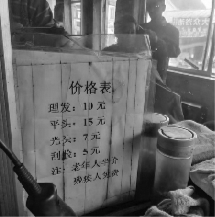 价格表
理发：10元
平头：15元
光头：7元
刮脸：5元
注：老年人半价
残疾人免费